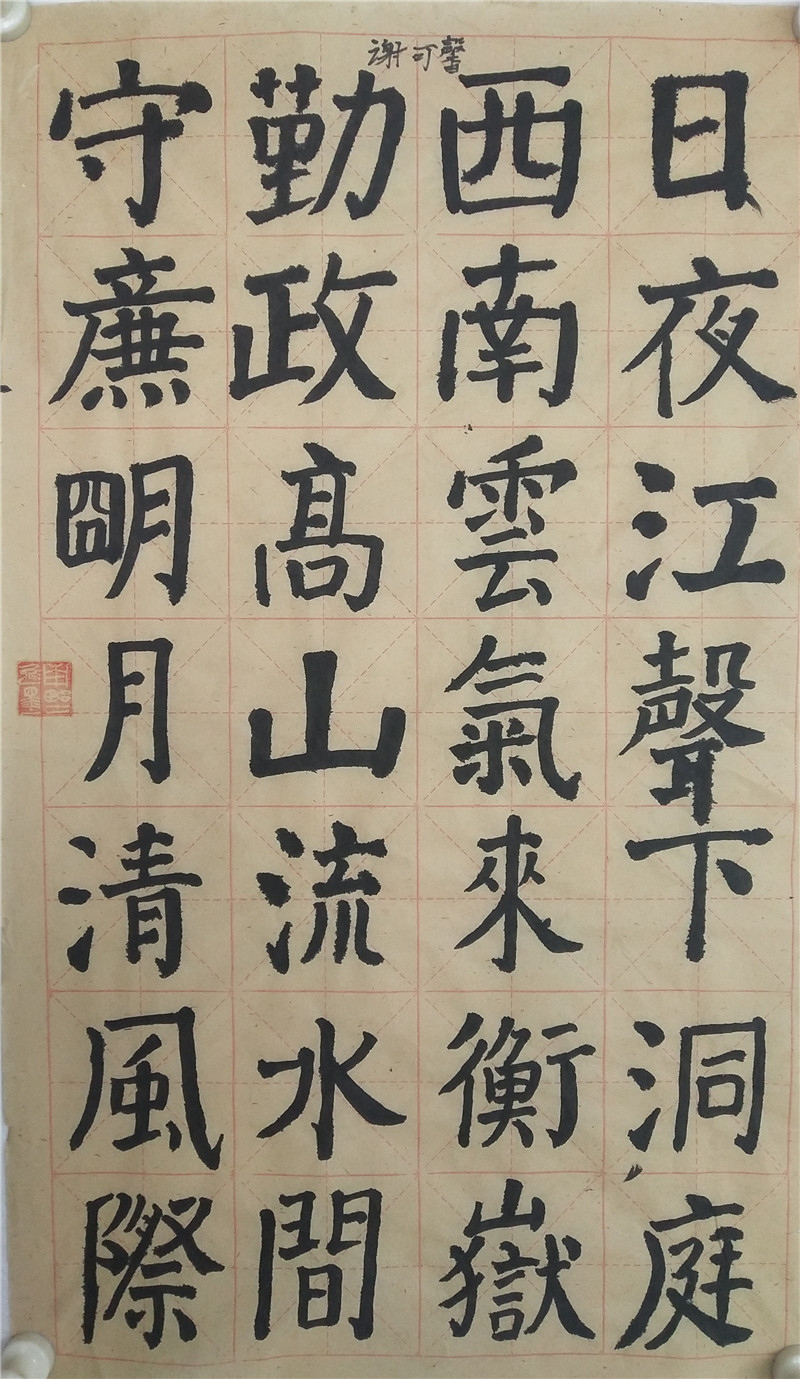 谢可馨
日夜江聲下洞庭
西南雲氣來衡嶽
勤政高山流水間
守廉明月清風際